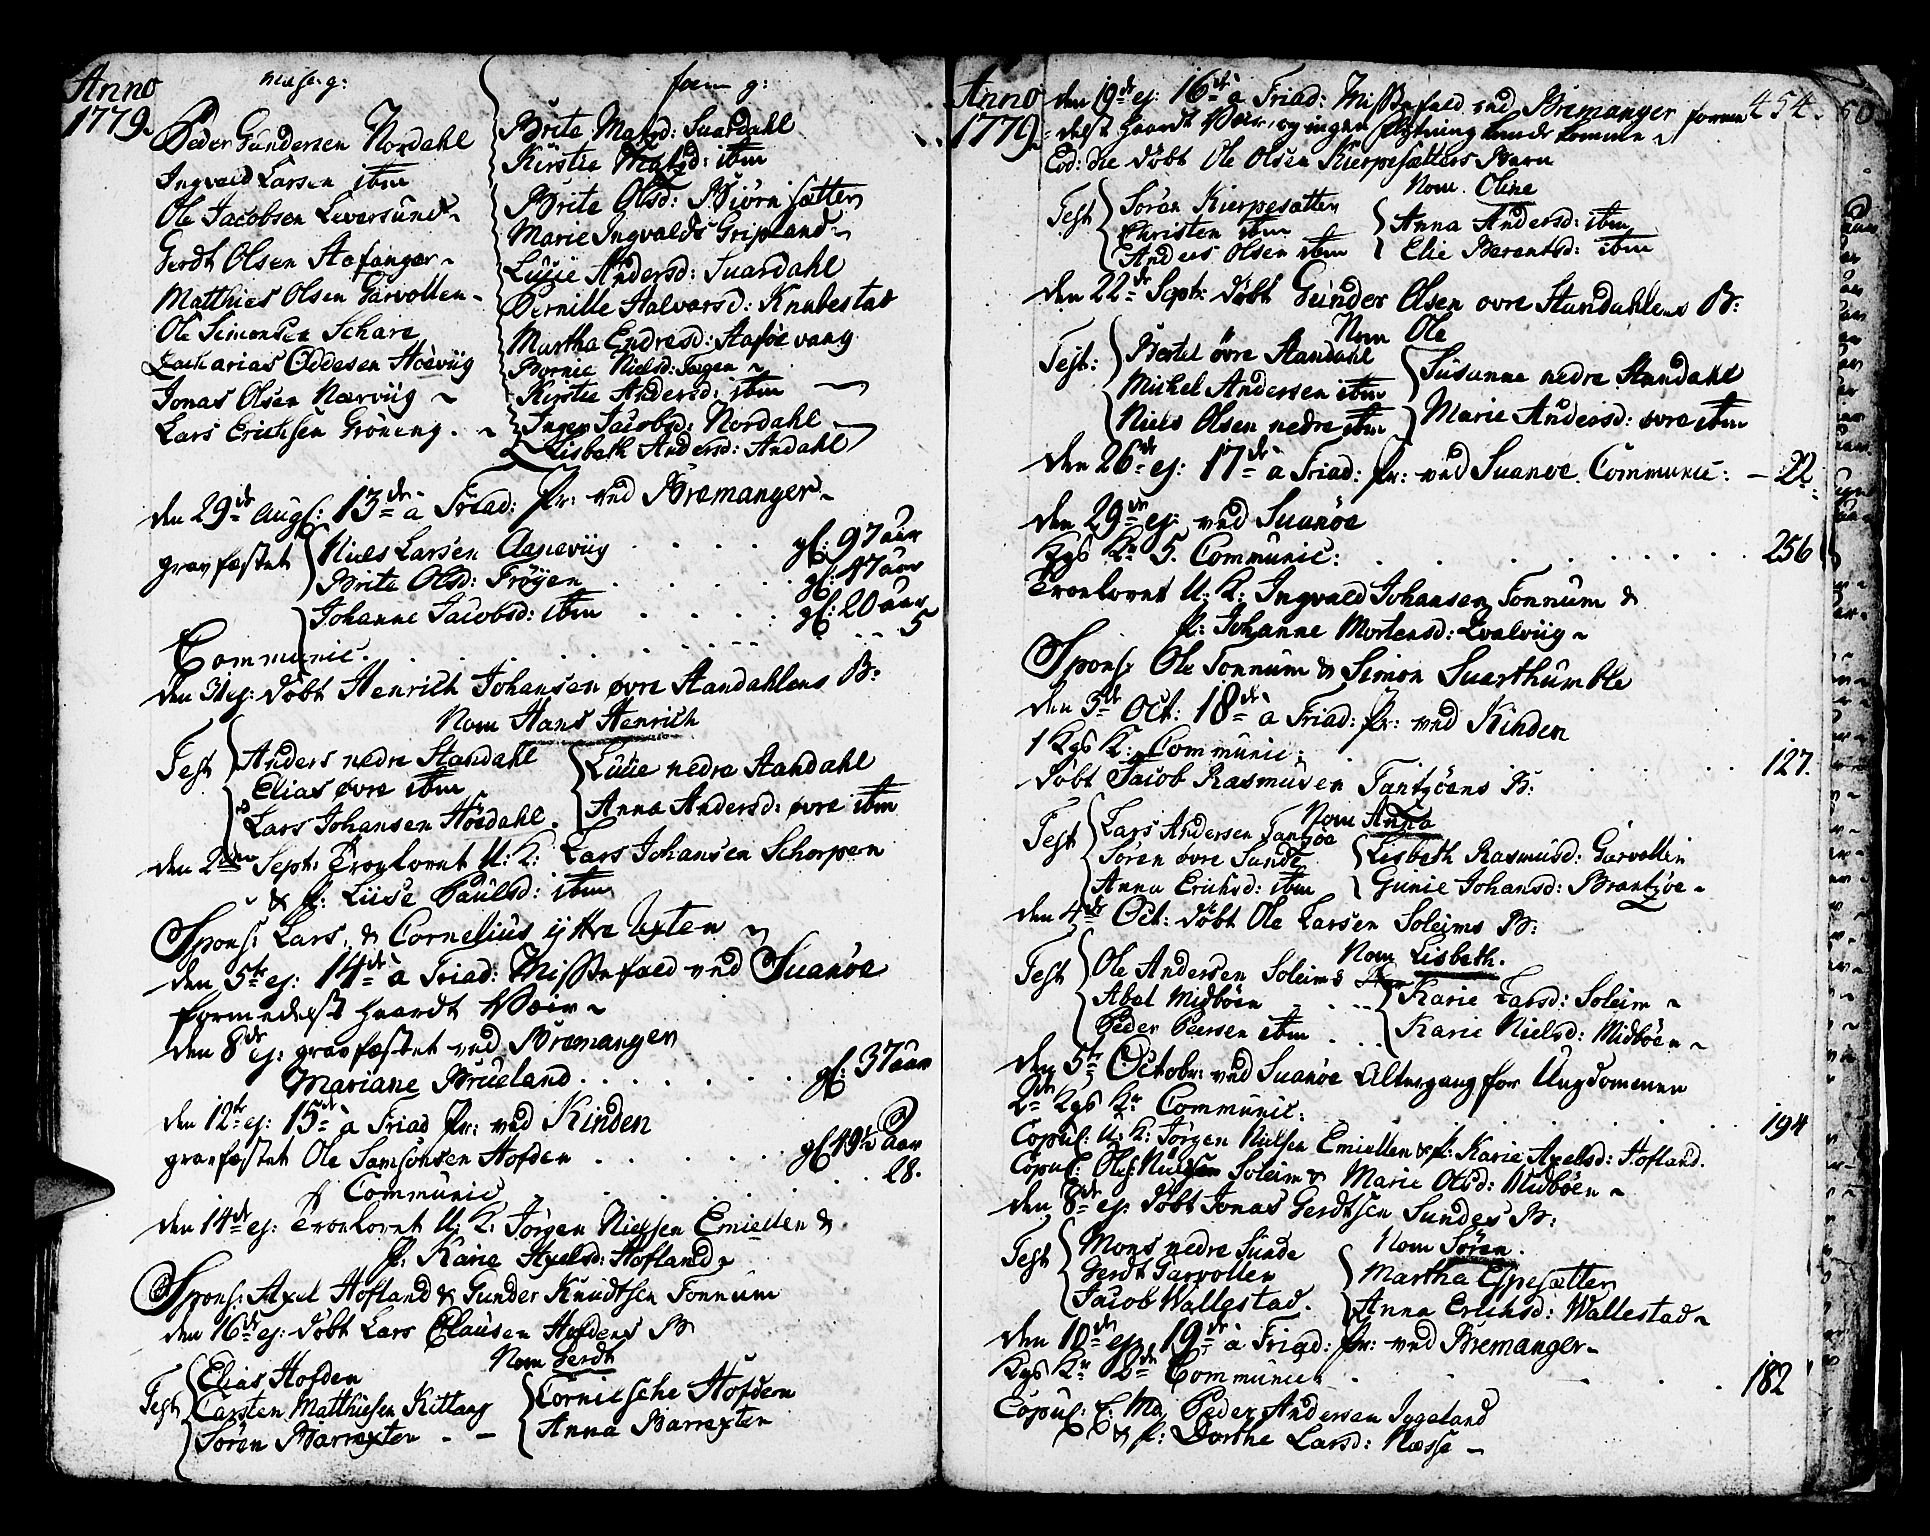 Anno
1779.
Peder Gundersen Nordahl
Ingvald Larsen ibm
Ole Jacobsen Leversund
Gerdt Olsen Stafanger
Matthies Olsen Garvollen
Ole Simonsen Schare
Zacharias Oddesen Hoeviig
Jonas Olsen Nærviig
Lars Erichsen Gröneng.
foem g:
Brite Madsd: Suardahl
Kirstie Madsd: ibm
Brite Olsd: Biörnsætter
Marie Ingvalds Gripland
Lucie Andersd: Suardahl
Pernille Halvarsd: Knabestad
Martha Endresd: Staföe vang
Kirstie Andersd: ibm
Inger Jacobsd: Nordahl
Lisbeth Andersd: Andahl
den 29de Augs: 13de à Triad: Pr: ved Bremanger
gravfæstet Niels Larsen Aaneviig . . . . gl: 97 aar
Brite Olsd: Fröyen . . . . gl: 47 aar
Johanne Jacobsd: ibm . . . . gl: 20 aar
Communic. . . . . 5
den 31 ej: döbt Henrich Johansen övre Standahlens B:
Nom Hans Henrich
Test Anders nedre Standahl
Elias övre ibm
Lars Johansen Höedahl.
Lucie nedre Standahl
Anna Andersd: övre ibm
den 2den Sept: Trolovet U: K: Lars Johansen Schorpen
& P: Lucie Paulsd: ibm
Spons: Lars & Cornelius ijttre Uxten
den 5te ej: 14de à Triad: Missefald ved Suanöe
formedelst haardt Veir
den 8de ej: gravfæstet ved Bremanger
Mariane Brueland . . . . gl: 37 aar
den 12te ej: 15de à Triad Pr: ved Kinden
gravfæstet Ole Samsonsen Hofden . . . . gl 49½ aar
Communic . . . . 28.
den 14de ej: Trolovet U: K: Jörgen Nielsen Emiellen &
P: Karie Axelsd: Hofland
Spons: Axel Hofland & Gunder Knudtsen Tonnum
den 16de ej: döbt Lars Clausen Hofdens B
Nom Gerdt
Test Elias Hofden
Carsten Matthiesen Kittang
Sören Barrexten
Cornelsche Hofden
Anna Barrexten
Anno
1779.
den 19de ej: 16de à Triad: Missefald ved Bremanger formedelst haardt Veir, og ingen flytning kunde komme
454.
Eod: die döbt Ole Olsen Kierpesætters Barn
Nom. Oline
Test Sören Kierpesætter
Christen ibm
Anders Olsen ibm
Anna Andersd: ibm
Elie Berentsd: ibm
den 22de Sept: döbt Gunder Olsen övre Standahlens B:
Nom Ole
Test: Bertel övre Standahl
Michel Andersen ibm
Niels Olsen nedre ibm
Susanna nedre Standahl
Marie Andersd: övre ibm
den 26de ej: 17de à Triad: Pr: ved Suanöe. Communic: - 22.
den 29de ej: ved Suanöe
Kgs Kr 5. Communic: . . . . 256
Trolovet U: K: Ingvald Johansen Tonnum &
P: Johanne Mortensd: Qvalviig
Spons: Ole Tonnum & Simon Suarthumble
den 3de Oct: 18de à Triad: Pr: ved Kinden
1 Kgs K: Communic: . . . . 127.
döbt Jacob Rasmusen Tantzöens B:
Nom Anna
Test Lars Andersen Tantzöe
Sören övre Sunde
Anna Erichsd: ibm
Lisbeth Rasmusd: Garvollen
Gunie Johansd: Brantzöe
den 4de Oct: döbt Ole Larsen Soleims B:
Nom Lisbeth.
Test Ole Andersen Soleims
Abel Midböen
Peder Peersen ibm
Karie Larsd: Soleim
Karie Nielsd: Midböen
den 5te Octobr: ved Suanöe Altergang for Ungdommen
2de Kgs Kr Communic: . . . . 194
Copul: U: K: Jörgen Nielsen Emiellen & P: Karie Axelsd: Hofland.
Copul: Ole Nielsen Soleim & Marie Olsd: Midböen
den 8de ej: döbt Jonas Gerdtsen Sundes B:
Nom Sören.
Test Mons nedre Sunde
Gerdt Garvollen
Jacob Wallestad.
Martha Espesætter
Anna Erichsd: Wallestad
den 10de ej: 19de à Triad: Pr: ved Bremanger
Kgs Kr 2de Communic: . . . . 182
Copul: E: Ma Peder Andersen Jygeland
& P: Dorthe Larsd: Næsse